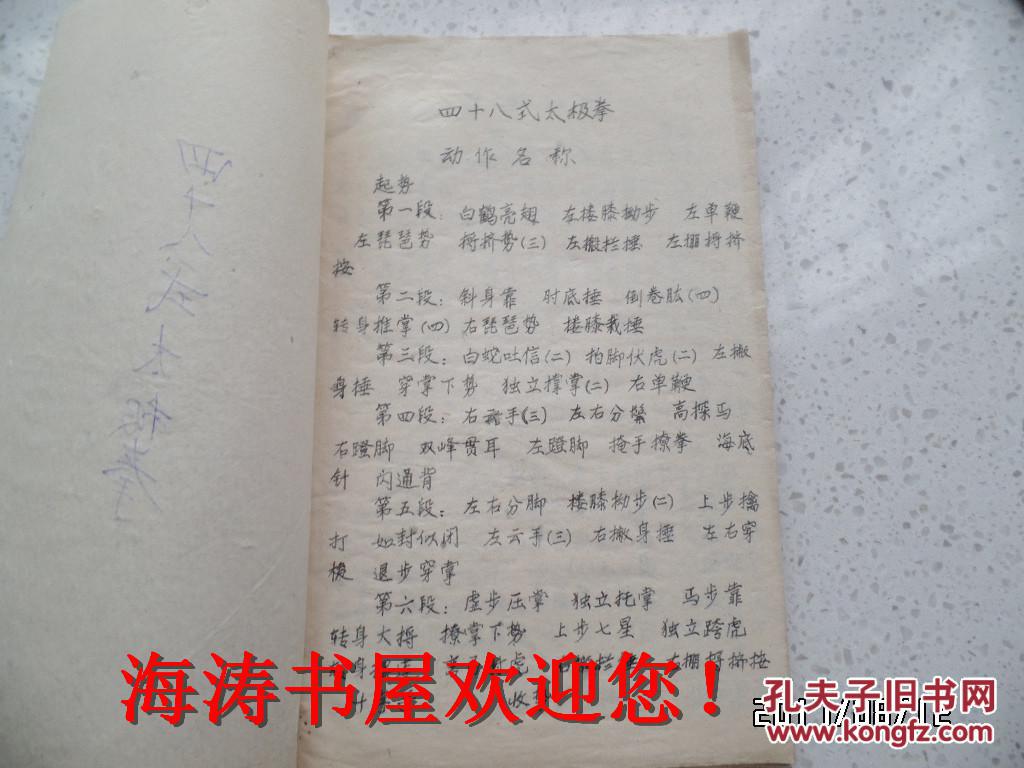 四十八式太极拳
四十八式太极拳
动作名称
起势
第一段：白鹤亮翅 左搂膝拗步 左单鞭
左琵琶势 捋挤势(三) 左搬拦捶 左掤捋挤
按
第二段：斜身靠 肘底捶 倒卷肱(四)
转身推掌(四) 右琵琶势 搂膝栽捶
第三段：白蛇吐信(二) 拍脚伏虎(二) 左撇
身捶 穿掌下势 独立撑掌(二) 右单鞭
第四段：右云手(三) 左右分鬃 高探马
右蹬脚 双峰贯耳 左蹬脚 掩手撩拳 海底
针 闪通背
第五段：左右分脚 搂膝拗步(二) 上步擒
打 如封似闭 左云手(三) 右撇身捶 左右穿
梭 退步穿掌
第六段：虚步压掌 独立托掌 马步靠
转身大捋 撩掌下势 上步七星 独立跨虎
身 虎 右掤捋挤按
十 收
海涛书屋欢迎您！
孔夫子旧书网
www.kongfz.com